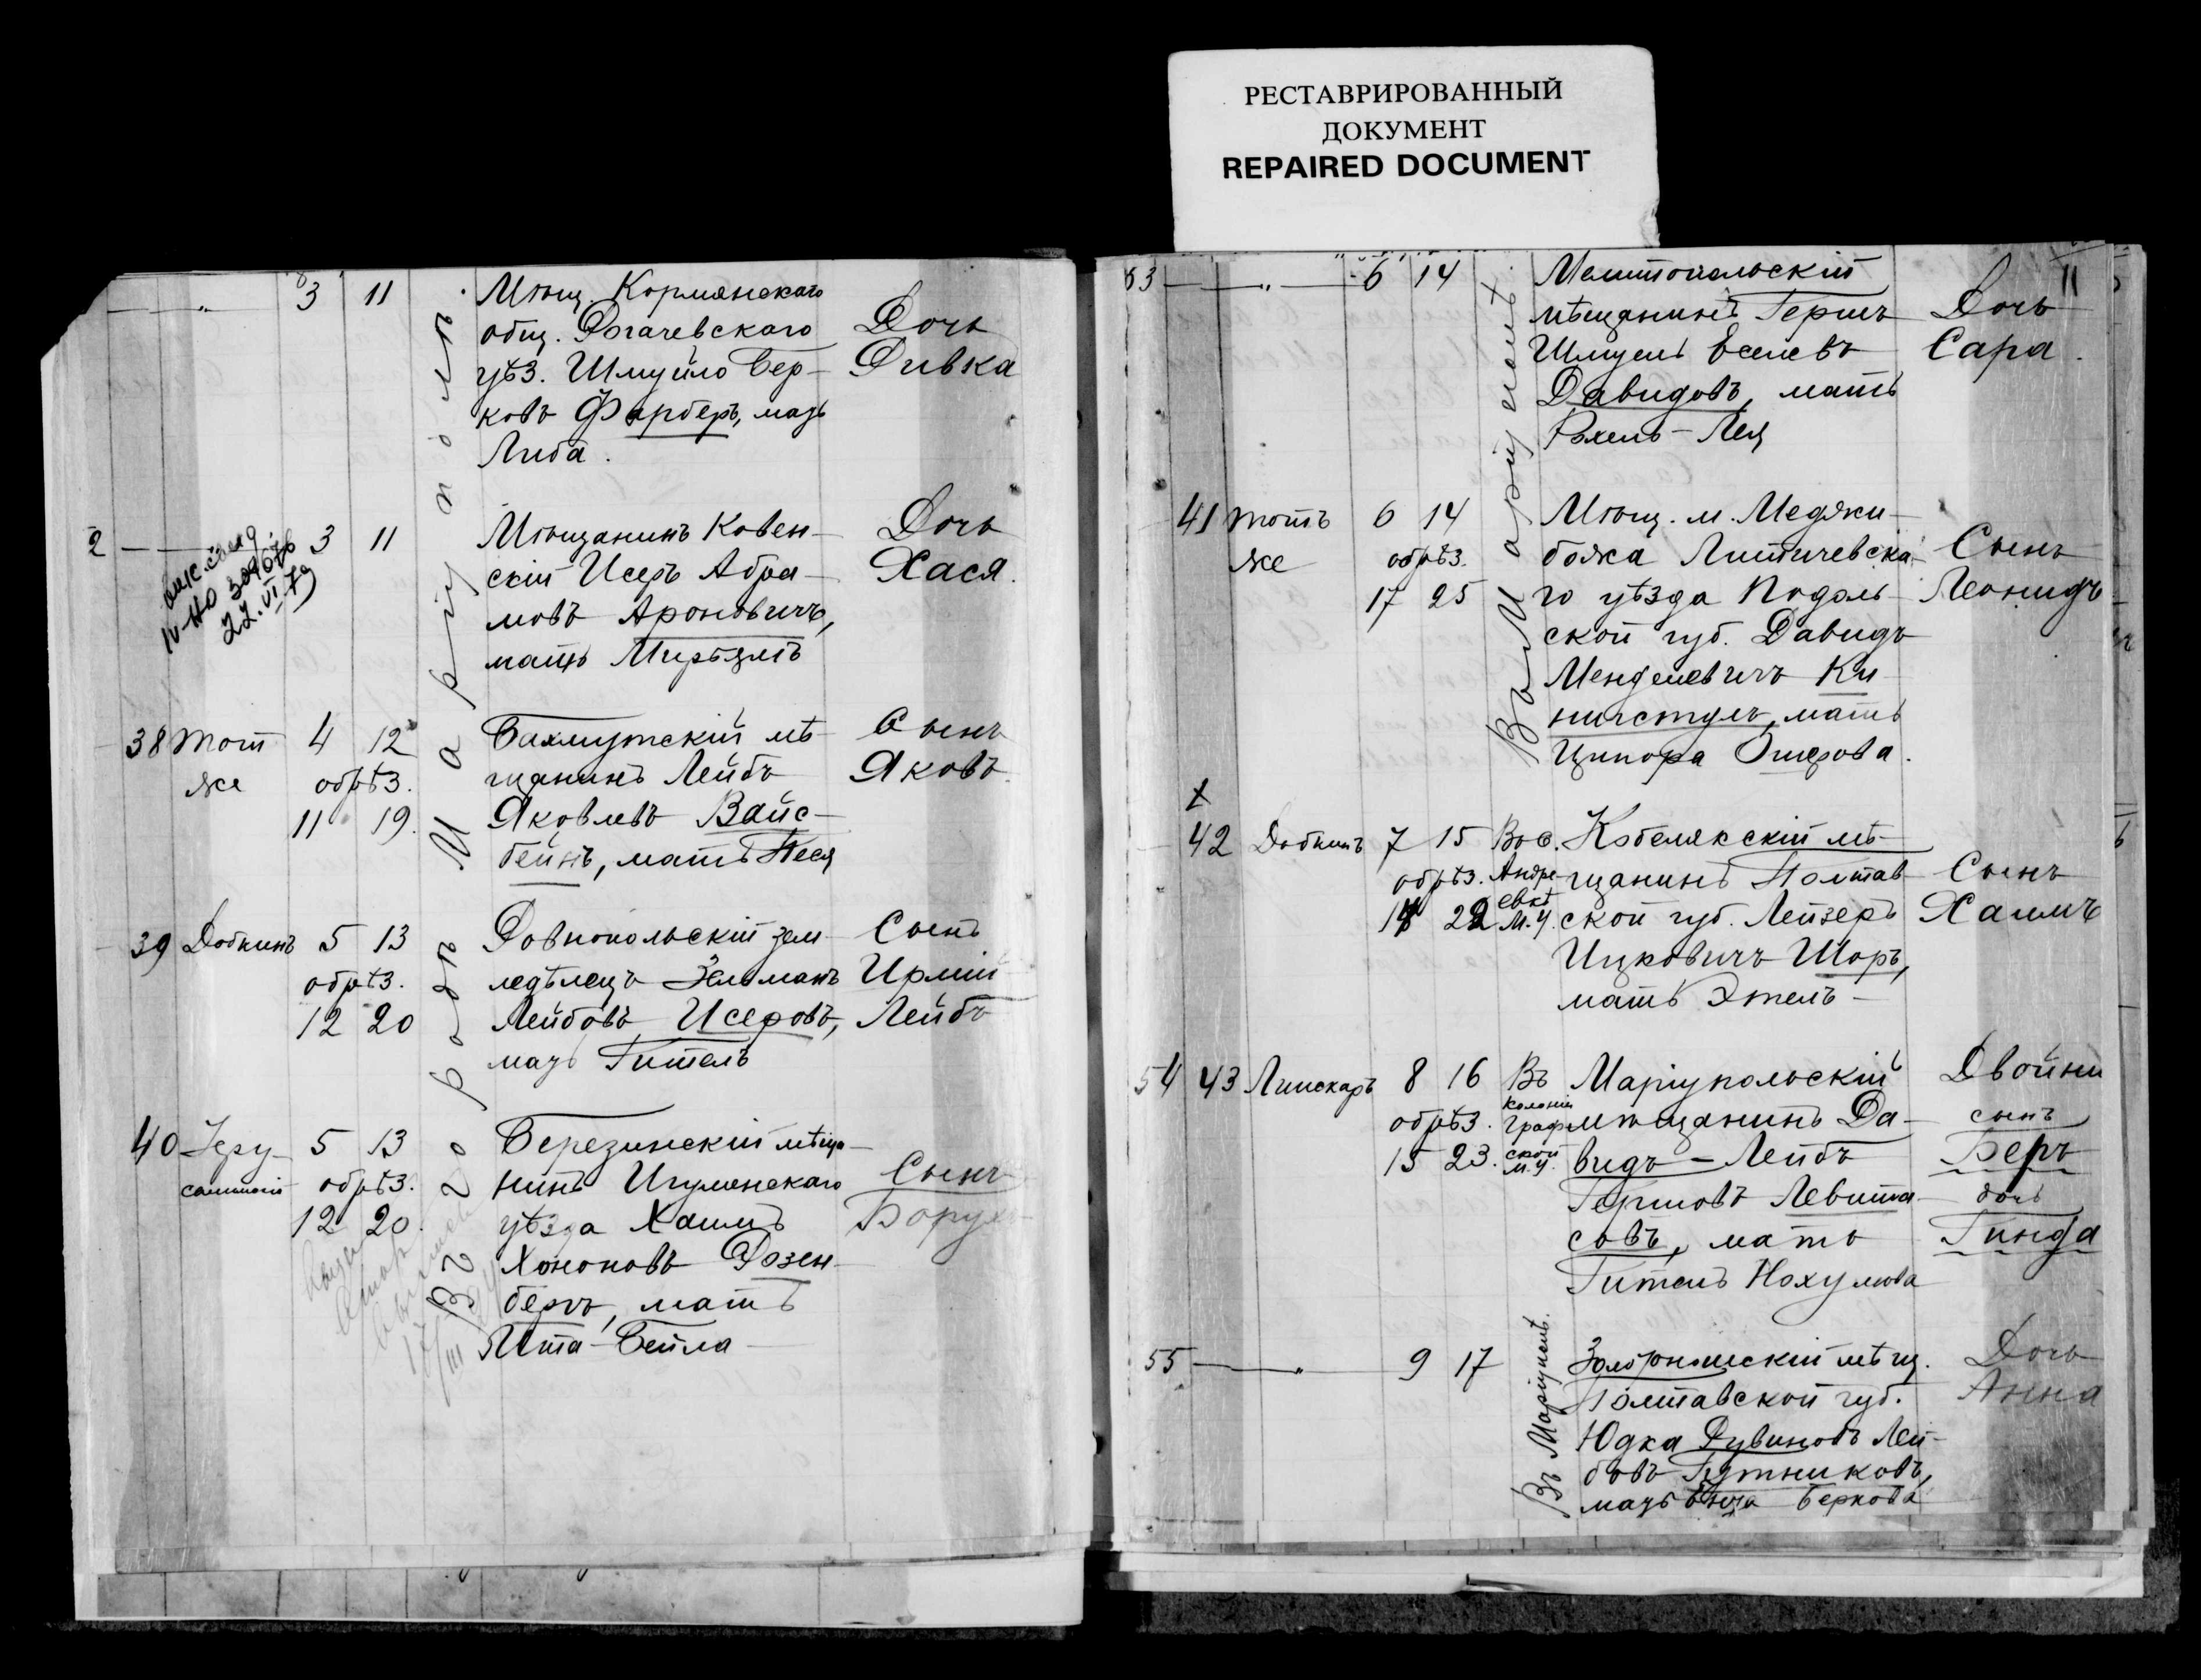 РЕСТАВРИРОВАННЫЙ
ДОКУМЕНТ
REPAIRED DOCUMENT
3 11
Мѣщ. Кормянскаго
общ. Рогачевскаго
уѣз. Шмуйло Бер-
ковъ Фарберъ, мать
Либа.
Дочь
Ривка
2
3 11
22.VI.79
Мѣщанинъ Ковен-
скій Исеръ Абра-
мовъ Ароновичъ,
мать Мирьямъ
Дочь
Хася.
38 Тот
же
4 12
обрѣз.
11 19.
Бахмутскій мѣ-
щанинъ Лейбъ
Яковлевъ Вайс-
бейнъ, мать Песя
Сынъ
Яковъ
39 Добкинъ 5 13
обрѣз.
12 20
Ровнопольскій зем-
ледѣлецъ Зельманъ
Лейбовъ Исеровъ,
мать Гитель
Сынъ
Ирмій
Лейбъ
40 Іеру-
салимскій
5 13
обрѣз.
12 20.
Березинскій мѣща-
нинъ Игуменскаго
уѣзда Хаимъ
Хононовъ Розен-
бергъ, мать
Ита-Бейла
Сынъ
Борухъ
Въ г. Маріуполѣ.
11
53 6 14
Мелитопольскій
мѣщанинъ Гершъ
Шмуель Еселевъ
Давидовъ, мать
Рахель-Лея
Дочь
Сара.
41 Тотъ
же
6 14
обрѣз.
17 25
Мѣщ. м. Меджи-
божа Литичевска-
го уѣзда Подоль-
ской губ. Давидъ
Менделевичъ Ки-
нигстулъ, мать
Ципора Ошерова.
Сынъ
Леонидъ
Въ Маріуполѣ.
42 Добкинъ 7 15
обрѣз.
14 22
Въ с.
Андре-
евкѣ
М.У.
Кобелякскій мѣ-
щанинъ Полтав-
ской губ. Лейзеръ
Ицковичъ Шоръ,
мать Этель-
Сынъ
Хаимъ
54 43 Линскаръ 8 16
обрѣз.
15 23.
Въ
колоніи
Граф-
ской
М.У.
Маріупольскій
мѣщанинъ Да-
видъ-Лейбъ
Гершовъ Левита-
совъ, мать
Гитель Нохумова
Двойни
сынъ
Беръ
дочь
Гинда
55 9 17
Въ Маріуполѣ.
Золотоношскій мѣщ.
Полтавской губ.
Юдка Рувиновъ Лей-
бовъ Гутниковъ,
мать Беркова
Дочь
Анна